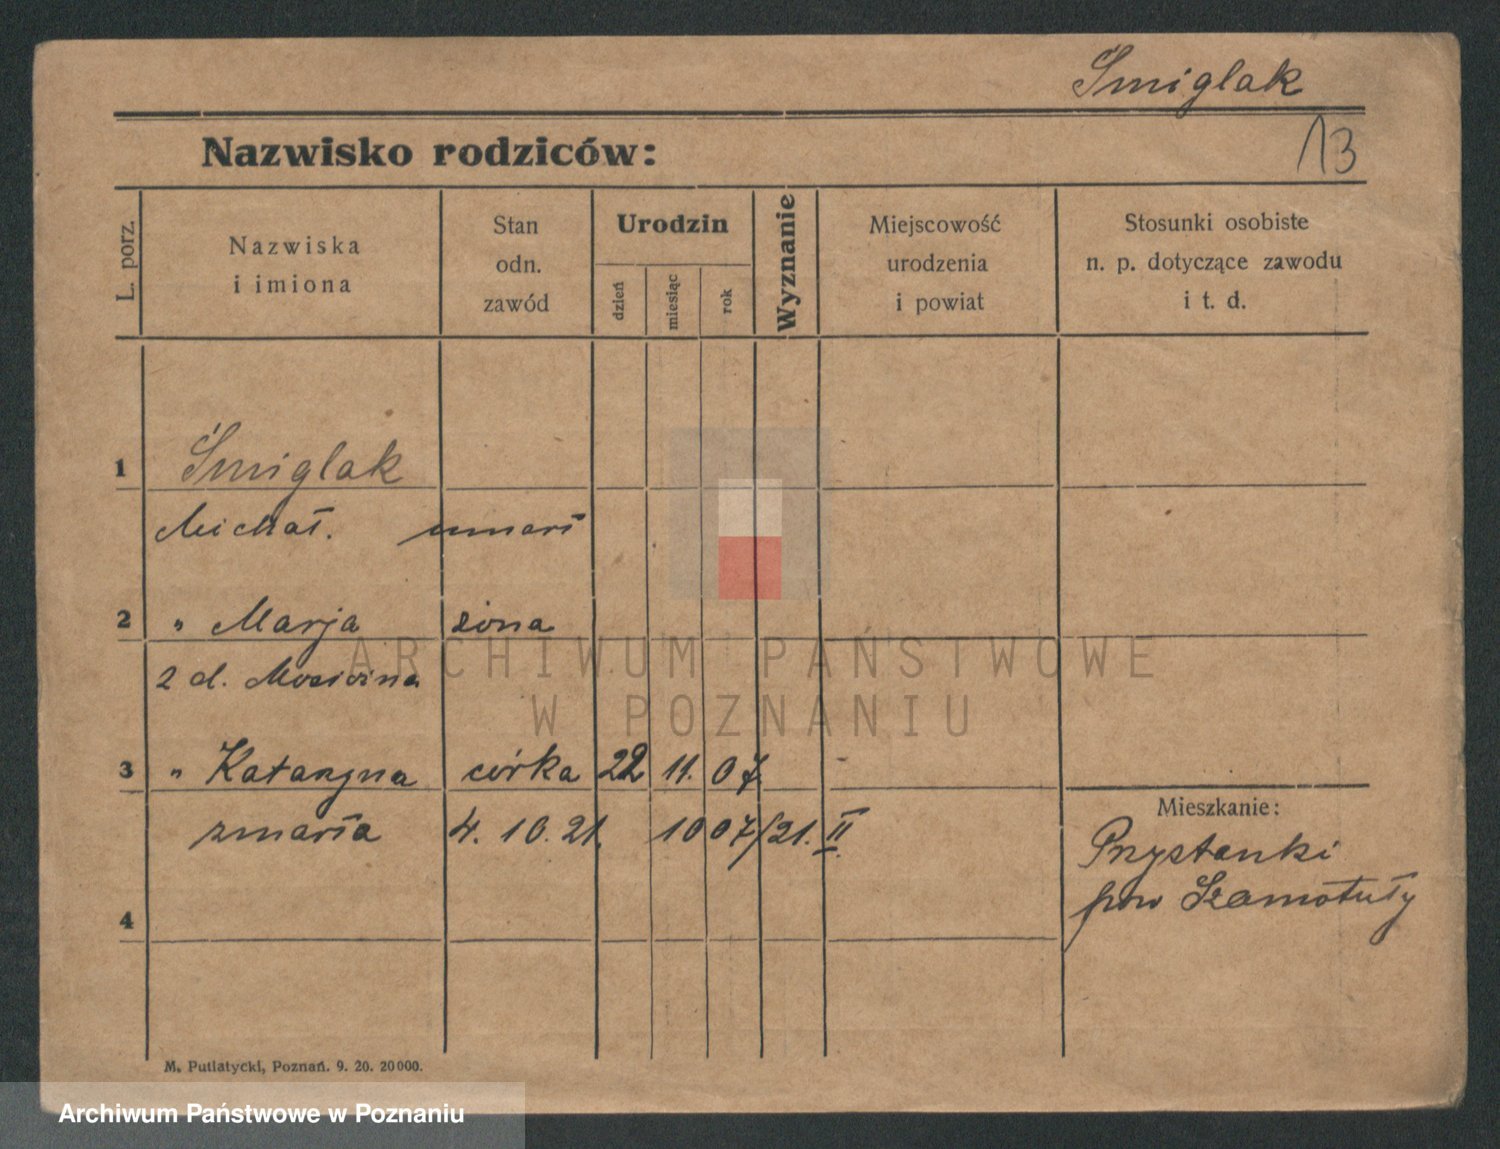 Śmiglak
13
Nazwisko rodziców:
L. porz.
Nazwiska
i imiona
Stan
odn.
zawód
Urodzin
dzień
miesiąc
rok
Wyznanie
Miejscowość
urodzenia
i powiat
Stosunki osobiste
n. p. dotyczące zawodu
i t. d.
1 Śmiglak
Michał. umarł
2 " Marja żona
2 d.
3 " Katarzyna córka 22 11. 07.
zmarła 4. 10. 21. 1007/21. II.
4
Mieszkanie:
Przystanki
pow Szamotuły
M. Putiatycki, Poznań. 9. 20. 20000.
ARCHIWUM PAŃSTWOWE
W POZNANIU
Archiwum Państwowe w Poznaniu